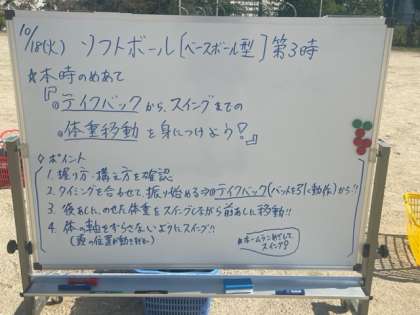 10/18(火) ソフトボール[ベースボール型]第3時
☆本時のめあて
『◎テイクバックから、スイングまでの
◎体重移動を身につけよう!』
◇ポイント
1. 握り方・構え方を確認
2. タイミングを合わせて、振り始める⇒◎テイクバック(バットを引く動作)から!!
3. 後あしに、のせた体重をスイングしながら前あしに移動!!
4. 体の軸をずらさないようにスイング!!
(頭の位置が動きすぎる)